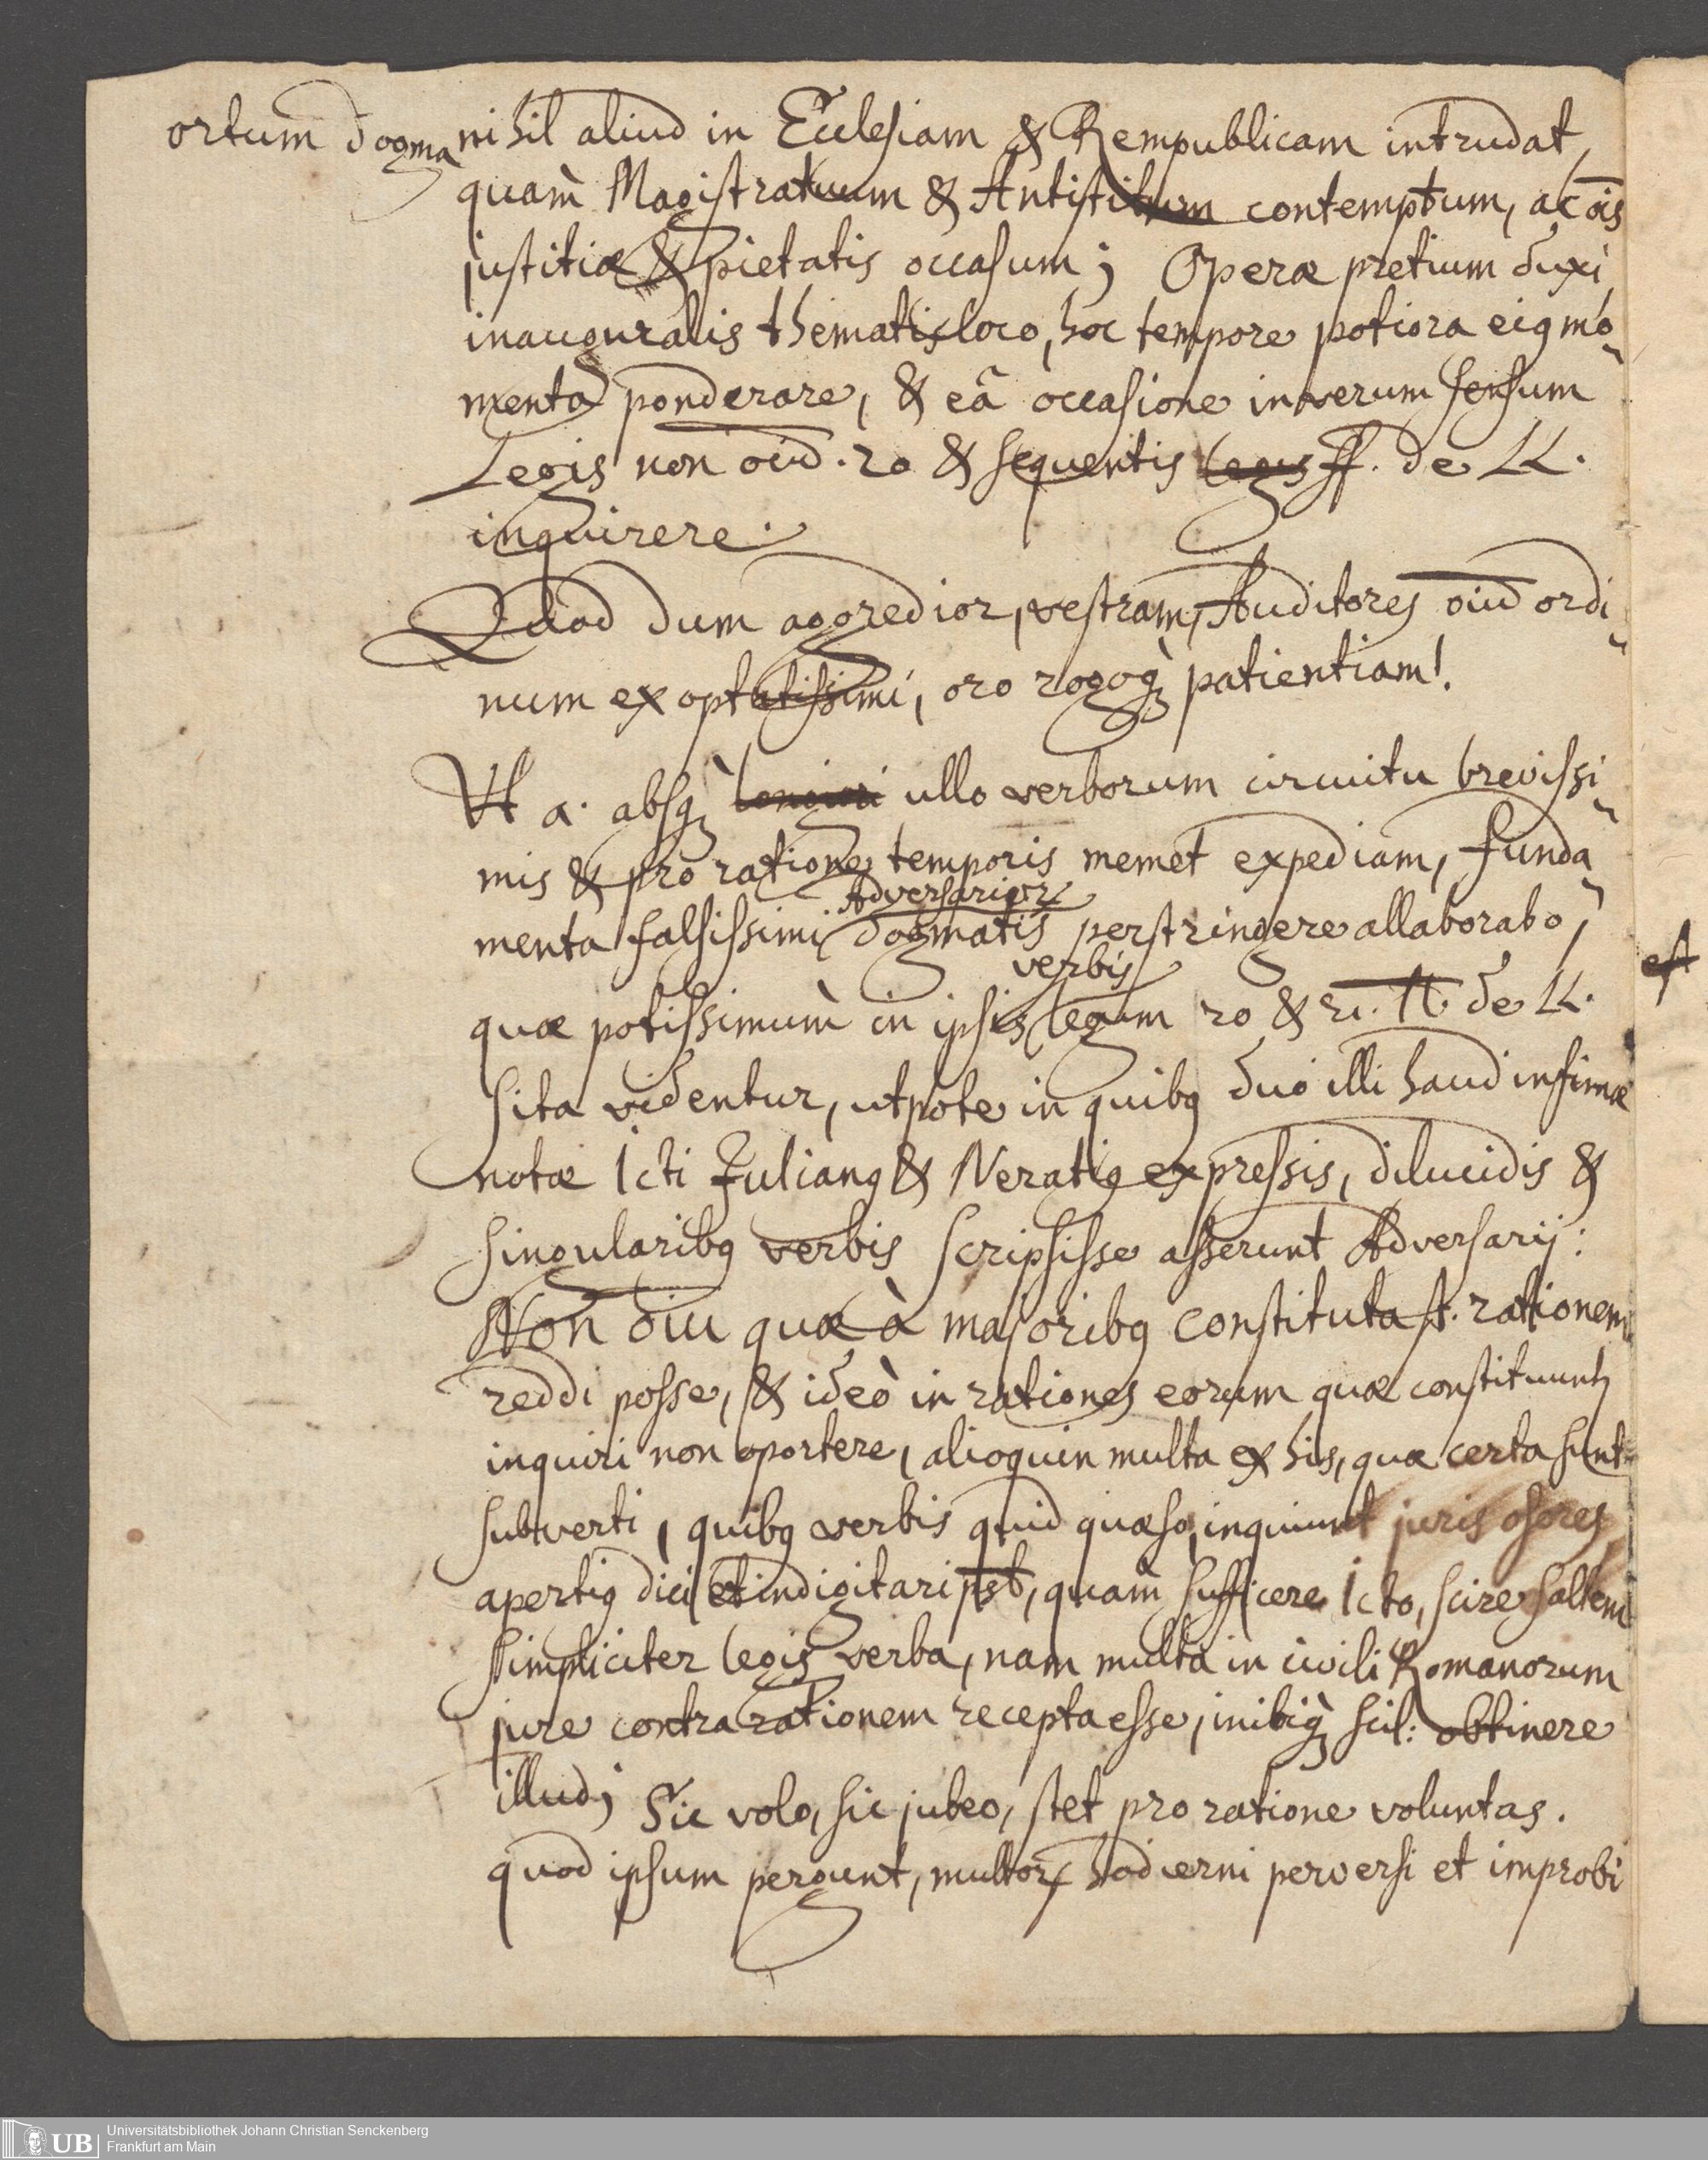 ortum dogma nihil aliud in Ecclesiam & Rempublicam intrudat,
quàm Magistratuum & Antistitum contemptum, ac ōis
justitiæ & pietatis occasum; Operæ pretium duxi
inauguralis thematis loco, hoc tempore potiora eiꝰ mo-
menta ponderare, & eâ occasione in verum sensum
Legis non oīū. 20 & sequentis legis ff. de LL.
inquirere.
Quod dum aggredior, vestram, Auditores oīū ordi-
num exoptatissimi, oro rogoq; patientiam!
Ut a. absq; longiori ullo verborum circuitu brevissi-
mis & pro ratione temporis memet expediam, funda-
Adversarior.
menta falsissimi dogmatis perstringere allaborabo,
verbis
quæ potissimùm in ipsis legum 20 & 21. ff. de LL.
sita videntur, utpote in quibꝰ duo illi haud infimæ
notæ Icti Julianꝰ & Neratiꝰ expressis, dilucidis &
singularibꝰ verbis scripsisse asserunt Adversarij:
Non oīū quæ à majoribꝰ constituta st. rationem
reddi posse, & ideò in rationes eorum quæ constituunt̃
inquiri non oportere, alioquin multa ex his, quæ certa sunt
subverti, quibꝰ verbis quid quæso, inquiunt juris osores
apertiꝰ dici et indigitari pt̄, quàm sufficere Icto, scire saltem
simpliciter legis verba, nam multa in civili Romanorum
jure contra rationem recepta esse, inibiq; scil: obtinere
illud; Sic volo, sic jubeo, stet pro ratione voluntas.
quod ipsum pergunt, multorꝝ hodierni perversi et improbi
Universitätsbibliothek Johann Christian Senckenberg
Frankfurt am Main
UB